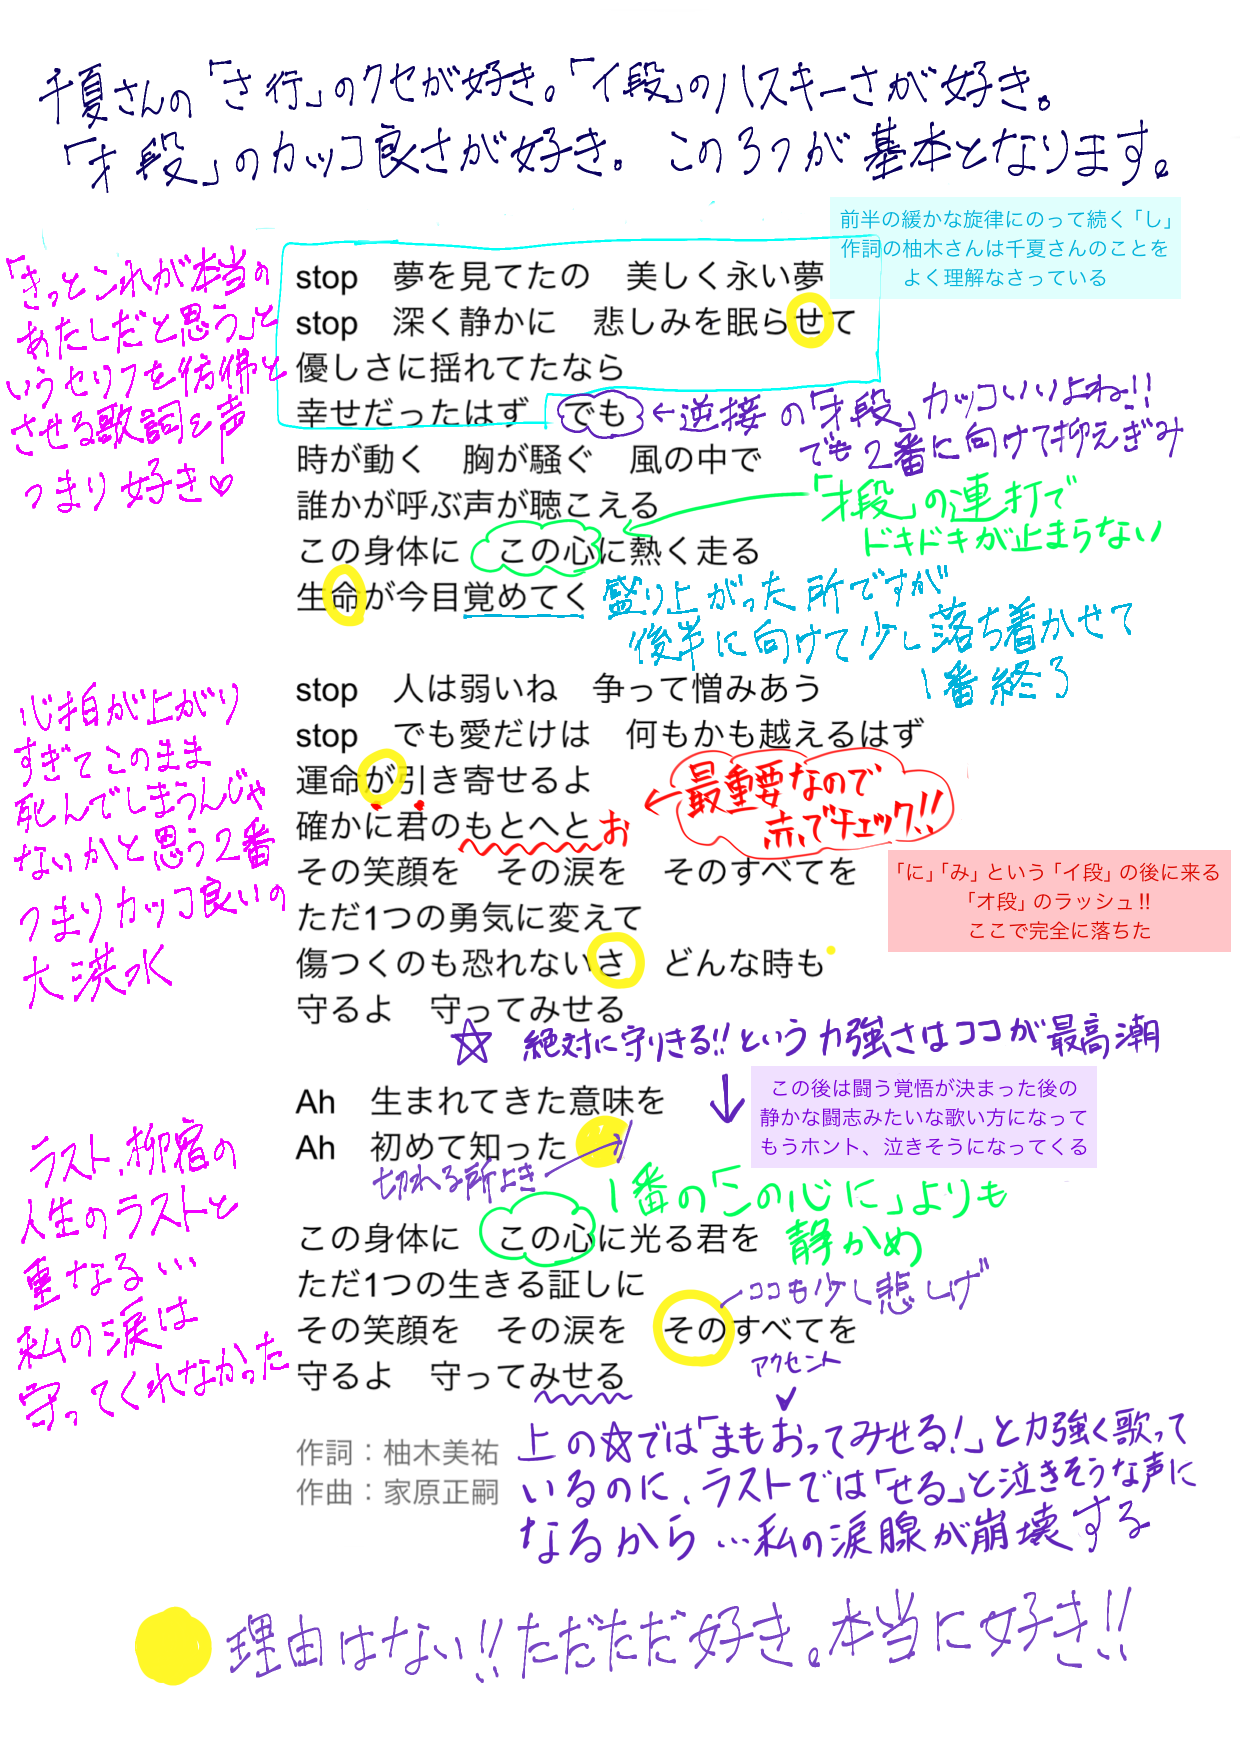 千夏さんの「さ行」のクセが好き。「イ段」のハスキーさが好き。
「オ段」のカッコ良さが好き。この3つが基本となります。
前半の緩かな旋律にのって続く「し」
作詞の柚木さんは千夏さんのことを
よく理解なさっている
「きっとこれが本当の
あたしだと思う」と
いうセリフを彷彿と
させる歌詞と声
つまり好き♡
stop 夢を見てたの 美しく永い夢
stop 深く静かに 悲しみを眠らせて
優しさに揺れてたなら
幸せだったはず でも
←逆接の「オ段」カッコいいよね!!
でも2番に向けて抑えぎみ
時が動く 胸が騒ぐ 風の中で
誰かが呼ぶ声が聴こえる
「オ段」の連打で
ドキドキが止まらない
この身体に この心に熱く走る
生命が今目覚めてく
盛り上がった所ですが
後半に向けて少し落ち着かせて
1番終了
心拍が上がり
すぎてこのまま
死んでしまうんじゃ
ないかと思う2番
つまりカッコ良いの
大洪水
stop 人は弱いね 争って憎みあう
stop でも愛だけは 何もかも越えるはず
運命が引き寄せるよ
確かに君のもとへと お
←最重要なので
赤でチェック!!
その笑顔を その涙を そのすべてを
「に」「み」という「イ段」の後に来る
「オ段」のラッシュ!!
ここで完全に落ちた
ただ1つの勇気に変えて
傷つくのも恐れないさ どんな時も
守るよ 守ってみせる
☆ 絶対に守りきる!!という力強さはココが最高潮
↓
この後は闘う覚悟が決まった後の
静かな闘志みたいな歌い方になって
もうホント、泣きそうになってくる
Ah 生まれてきた意味を
Ah 初めて知った
切れる所よき
ラスト、柳宿の
人生のラストと
重なる…
私の涙は
守ってくれなかった
1番の「この心に」よりも
静かめ
この身体に この心に光る君を
ただ1つの生きる証しに
ココも少し悲しげ
その笑顔を その涙を そのすべてを
守るよ 守ってみせる
アクセント
作詞：柚木美祐
作曲：家原正嗣
上の☆では「まもおってみせる!」と力強く歌って
いるのに、ラストでは「せる」と泣きそうな声に
なるから…私の涙腺が崩壊する
理由はない!!ただただ好き。本当に好き!!